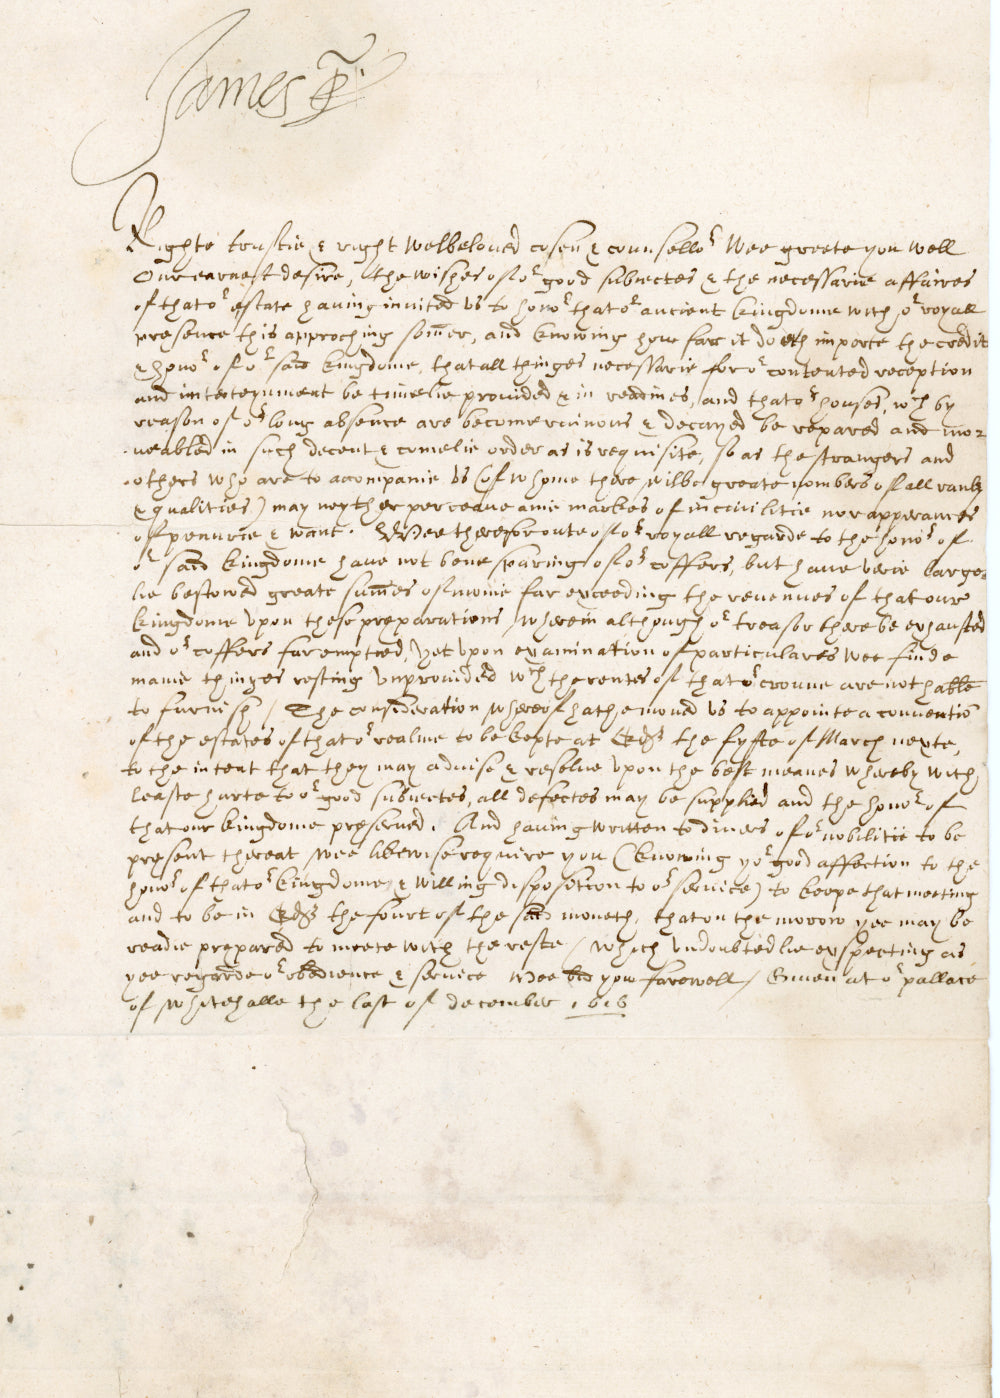 James R
Righte trustie & right welbeloued cosen & counsellor Wee greete you well
Our earnest desire, the wishes of or good subiectes & the necessarie affaires
of that or estate hauing inuited vs to honor that or ancient kingdome with or royall
presence this approching somer, and knowing how farr it doeth importe the credit
& honor of or said kingdome, that all thinges necessarie for or contented reception
and intertejnment be timelie prouided & in readines, and that or houses, wch by
reason of or long absence are become ruinous & decayed be repared and mo=
ueabled in such decent & comelie order as is requisite, so as the strangers and
others who are to acompanie vs (of whome there wilbe greate nombers of all rankes
& qualities) may neyther perceaue anie markes of inciuilitie nor apperances
of penurie & want. Wee therefor oute of or royall regarde to the honor of
or said kingdome haue not bene sparing of or coffers, but haue verie large=
lie bestowed greate sumes of monie far exceeding the reuenues of that our
kingdome vpon these preparations, wherein although or treasor there be exhausted
and or coffers far emptied, yet vpon examination of particulares wee finde
manie thinges resting vnprouided wch the rentes of that or croune are not hable
to furnish / The consideration whereof hathe moued vs to appointe a conuentio
of the estates of that or realme to be kepte at Edr the fyfte of March nexte,
to the intent that they may aduise & resolue vpon the best meanes whereby with
leaste hurte to or good subiectes, all defectes may be supplied and the honor of
that our kingdome preserued. And hauing written to diuers of or nobilitie to be
present thereat wee likewise require you (knowing yor good affection to the
honor of that or kingdome, & willing disposition to or seruice) to keepe that meeting
and to be in Edr the fourt of the said moneth, that on the morow yee may be
readie prepared to meete with the reste / which vndoubtedlie expecting as
yee regarde or obedience & seruice Wee bid you farewell / Giuen at or pallace
of Whitehalle the last of december 1616